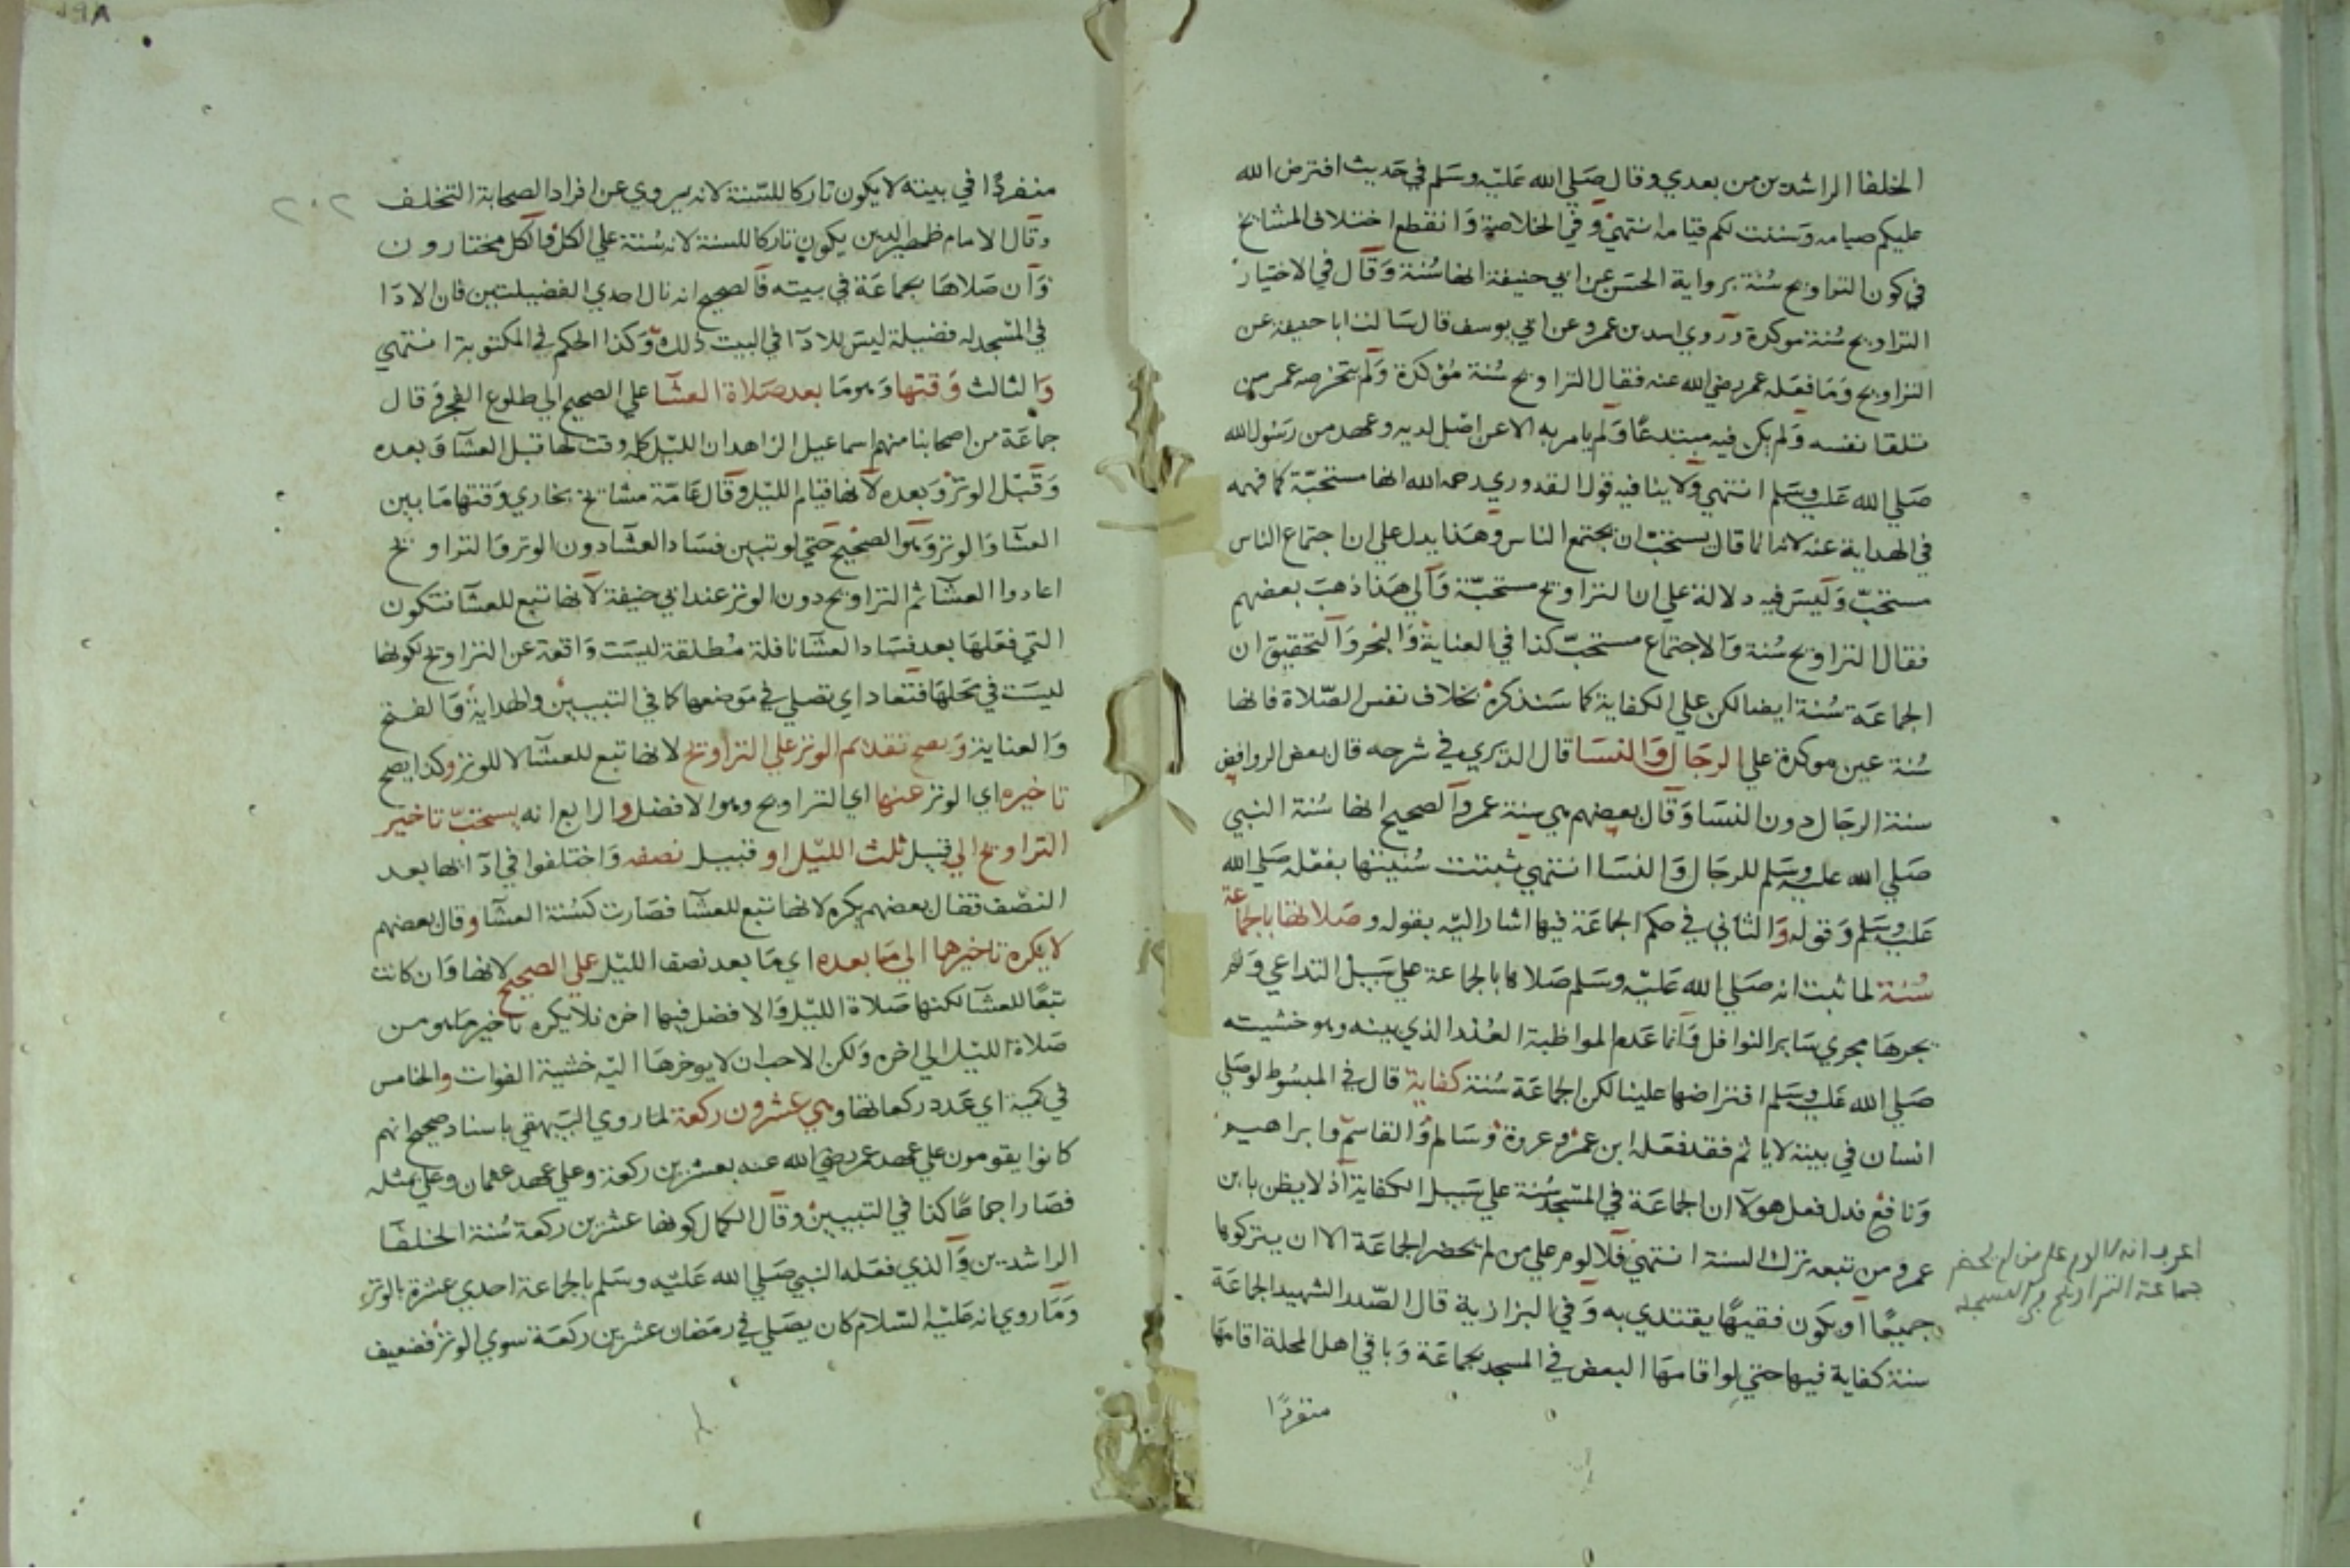 الخلفا الراشدين من بعدي وقال صلي الله عليه وسلم في حديث افترض الله
عليكم صيامه وسننت لكم قيامه انتهي وفي الخلاصة وانقطع اختلاف المشايخ
في كون التراويح سنة برواية الحسن عن ابي حنيفة انها سنة وقال في الاختيار
التراويح سنة موكدة وروي اسد بن عمرو عن ابي يوسف قال سالت ابا حنيفة عن
التراويح وما فعله عمر رضي الله عنه فقال التراويح سنة مؤكدة ولم يتخرصه عمر من
تلقا نفسه ولم يكن فيه مبتدعا ولم يامر به الا عن اصل لديه وعهد من رسول الله
صلي الله عليه وسلم انتهي ولا ينافيه قول القدوري رحمه الله انها مستحبة كما فهمه
في الهداية عنه لانه انما قال يستحب ان يجتمع الناس وهذا يدل علي ان اجتماع الناس
مستحب وليس فيه دلالة علي ان التراويح مستحبة والي هذا ذهب بعضهم
فقال التراويح سنة والاجتماع مستحب كذا في العناية والبحر والتحقيق ان
الجماعة سنة ايضا لكن علي الكفاية كما سنذكره بخلاف نفس الصلاة فانها
سنة عين موكدة علي الرجال والنسا قال الديري في شرحه قال بعض الروافض
سنة الرجال دون النسا وقال بعضهم هي سنة عمر والصحيح انها سنة النبي
صلي الله عليه وسلم للرجال والنسا انتهي ثبتت سنيتها بفعله صلي الله
عليه وسلم وقوله والثاني في حكم الجماعة فيها اشار اليه بقوله وصلاتها بالجماعة
سنة لما ثبت انه صلي الله عليه وسلم صلاها بالجماعة علي سبيل التداعي ولم
يجرها مجري ساير النوافل وانما عدم المواظبة العذر الذي بينه وهو خشيته
صلي الله عليه وسلم افتراضها علينا لكن الجماعة سنة كفاية قال في المبسوط لو صلي
انسان في بيته لا ياثم فقد فعله ابن عمر وعروة وسالم والقاسم وابراهيم
ونافع فدل فعل هولا ان الجماعة في المسجد سنة علي سبيل الكفاية اذ لا يظن بابن
عمر ومن تبعه ترك السنة انتهي فلا لوم علي من لم يحضر الجماعة الا ان يتركوها
جميعا او يكون فقيها يقتدي به وفي البزازية قال الصدر الشهيد الجماعة
سنة كفاية فيها حتي لو اقامها البعض في المسجد بجماعة وباقي اهل المحلة اقامها
منفردا
انه لا لوم علي من لم يحضر
جماعة التراويح في المسجد
٢٠٢
منفردا في بيته لا يكون تاركا للسنة لانه يروي عن افراد الصحابة التخلف
وقال الامام ظهير الدين يكون تاركا للسنة لانه سنة علي الكل والكل مختارون
وان صلاها بجماعة في بيته فالصحيح انه نال احدي الفضيلتين فان الادا
في المسجد له فضيلة ليس للادا في البيت ذلك وكذا الحكم في المكتوبة انتهي
والثالث وقتها وهو ما بعد صلاة العشا علي الصحيح الي طلوع الفجر وقال
جماعة من اصحابنا منهم اسماعيل الزاهد ان الليل كله وقت لها قبل العشا وبعده
وقبل الوتر وبعده لانها قيام الليل وقال عامة مشايخ بخاري وقتها ما بين
العشا والوتر وهو الصحيح حتي لو تبين فساد العشا دون الوتر والتراويح
اعادوا العشا ثم التراويح دون الوتر عند ابي حنيفة لانها تبع للعشا فتكون
التي فعلها بعد فساد العشا نافلة مطلقة ليست واقعة عن التراويح لكونها
ليست في محلها فتعاد اي تصلي في موضعها كما في التبيين والهداية والفتح
والعناية ويصح تقديم الوتر علي التراويح لانها تبع للعشا لا للوتر وكذا يصح
تاخيره اي الوتر عنها اي التراويح وهو الافضل والرابع انه يستحب تاخير
التراويح الي قبل ثلث الليل او قبيل نصفه واختلفوا في ادائها بعد
النصف فقال بعضهم يكره لانها تبع للعشا فصارت كسنة العشا وقال بعضهم
لا يكره تاخيرها الي ما بعده اي ما بعد نصف الليل علي الصحيح لانها وان كانت
تبعا للعشا لكنها صلاة الليل والافضل فيها اخره فلا يكره تاخير ما هو من
صلاة الليل الي اخره ولكن الاحب ان لا يوخرها اليه خشية الفوات والخامس
في كمية اي عدد ركعاتها وهي عشرون ركعة لما روي البيهقي باسناد صحيح انهم
كانوا يقومون علي عهد عمر رضي الله عنه بعشرين ركعة وعلي عهد عثمان وعلي مثله
فصار اجماعا كذا في التبيين وقال الكمال كونها عشرين ركعة سنة الخلفا
الراشدين والذي فعله النبي صلي الله عليه وسلم بالجماعة احدي عشرة بالوتر
وما روي انه عليه السلام كان يصلي في رمضان عشرين ركعة سوي الوتر فضعيف